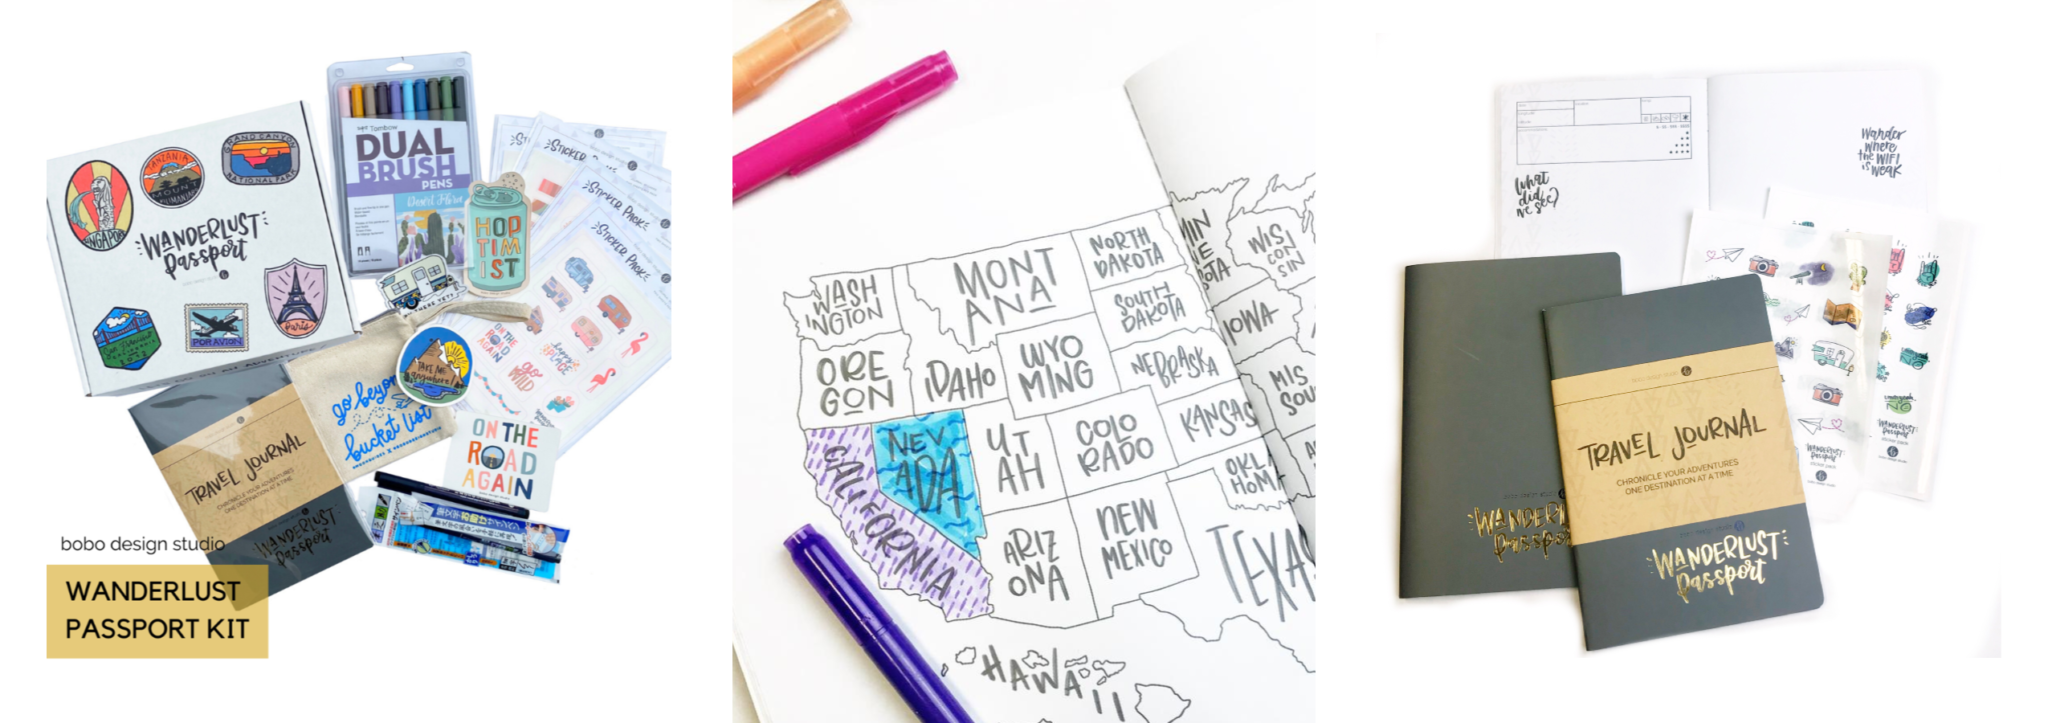 GRAND CANYON
NATIONAL PARK
TANZANIA
MOUNT
SINGAPORE
WANDERLUST
Passport
Paris
San Francisco
PAR AVION
DUAL
BRUSH
PENS
Desert Flora
HOP
TIM
IST
STICKER PACK
STICKER PACK
STICKER PACK
THERE YET?
TAKE ME
anywhere!
go beyond
bucket list
ON THE
ROAD
AGAIN
happy
PLACE
go
WILD
ON THE
ROAD
AGAIN
TRAVEL JOURNAL
CHRONICLE YOUR ADVENTURES
ONE DESTINATION AT A TIME
WANDERLUST
Passport
bobo design studio
WANDERLUST
PASSPORT KIT
WASH
INGTON
MONT
ANA
NORTH
DAKOTA
MIN
NE
SOTA
WIS
CON
SIN
SOUTH
DAKOTA
ORE
GON
IDAHO
WYO
MING
NEBRASKA
IOWA
NEV
ADA
UT
AH
COLO
RADO
KANSAS
MIS
SOU
CALIFORNIA
ARIZ
ONA
NEW
MEXICO
OKLA
HOMA
TEXAS
HAWAII
What
did
we see?
Wander
where
the WIFI
is weak
WANDERL
Passpo
TRAVEL JOURNAL
CHRONICLE YOUR ADVENTURES
ONE DESTINATION AT A TIME
WANDERLUST
Passport
NO
WANDERLUST
Passport
sticker pack
WANDERLUST
Passport
sticker pack